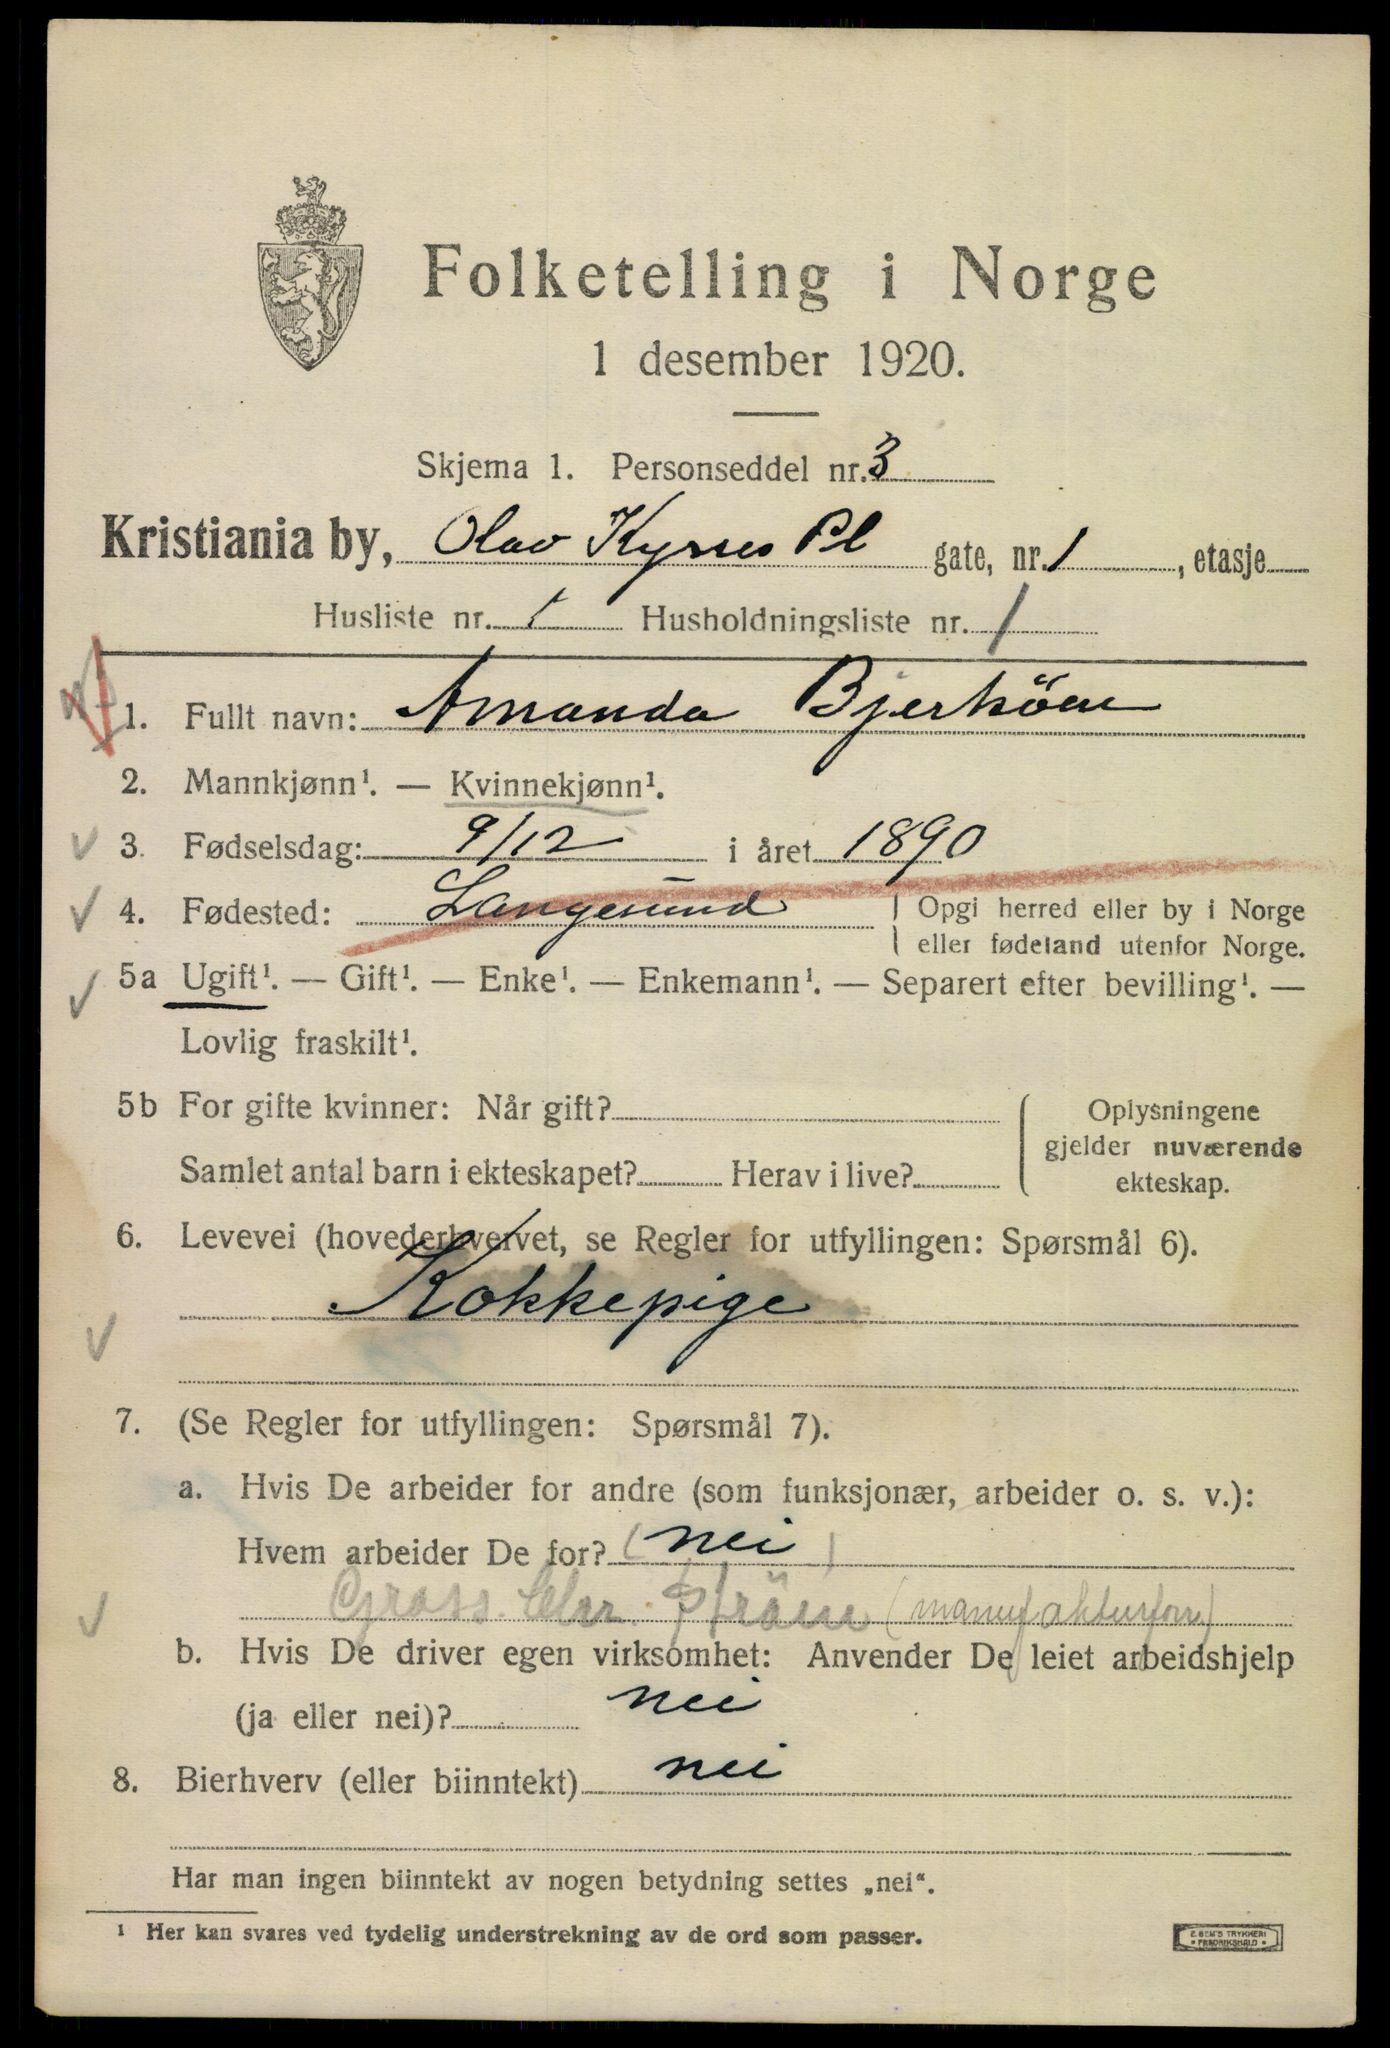 Folketelling i Norge
1 desember 1920.
Skjema 1. Personseddel nr. 3
Kristiania by, Olav Kyrres Pl gate, nr. 1, etasje
Husliste nr. 1 Husholdningsliste nr. 1
1. Fullt navn: Amanda Bjerköen
2. Mannkjønn¹. — Kvinnekjønn¹.
3. Fødselsdag: 9/12 i året 1890
4. Fødested: Langesund Opgi herred eller by i Norge
eller fødeland utenfor Norge.
5a Ugift¹. — Gift¹. — Enke¹. — Enkemann¹. — Separert efter bevilling¹. —
Lovlig fraskilt¹.
5b For gifte kvinner: Når gift?
Samlet antal barn i ekteskapet? Herav i live?
Oplysningene
gjelder nuværende
ekteskap.
6. Levevei (hovederhvervet, se Regler for utfyllingen: Spørsmål 6).
Kokkepige
7. (Se Regler for utfyllingen: Spørsmål 7).
a. Hvis De arbeider for andre (som funksjonær, arbeider o. s. v.):
Hvem arbeider De for? (nei)
Gross. Chr. Ström (manufakturforr)
b. Hvis De driver egen virksomhet: Anvender De leiet arbeidshjelp
(ja eller nei)? nei
8. Bierhverv (eller biinntekt) nei
Har man ingen biinntekt av nogen betydning settes „nei“.
¹ Her kan svares ved tydelig understrekning av de ord som passer.
E. SEM'S TRYKKERI
• FREDRIKSHALD •